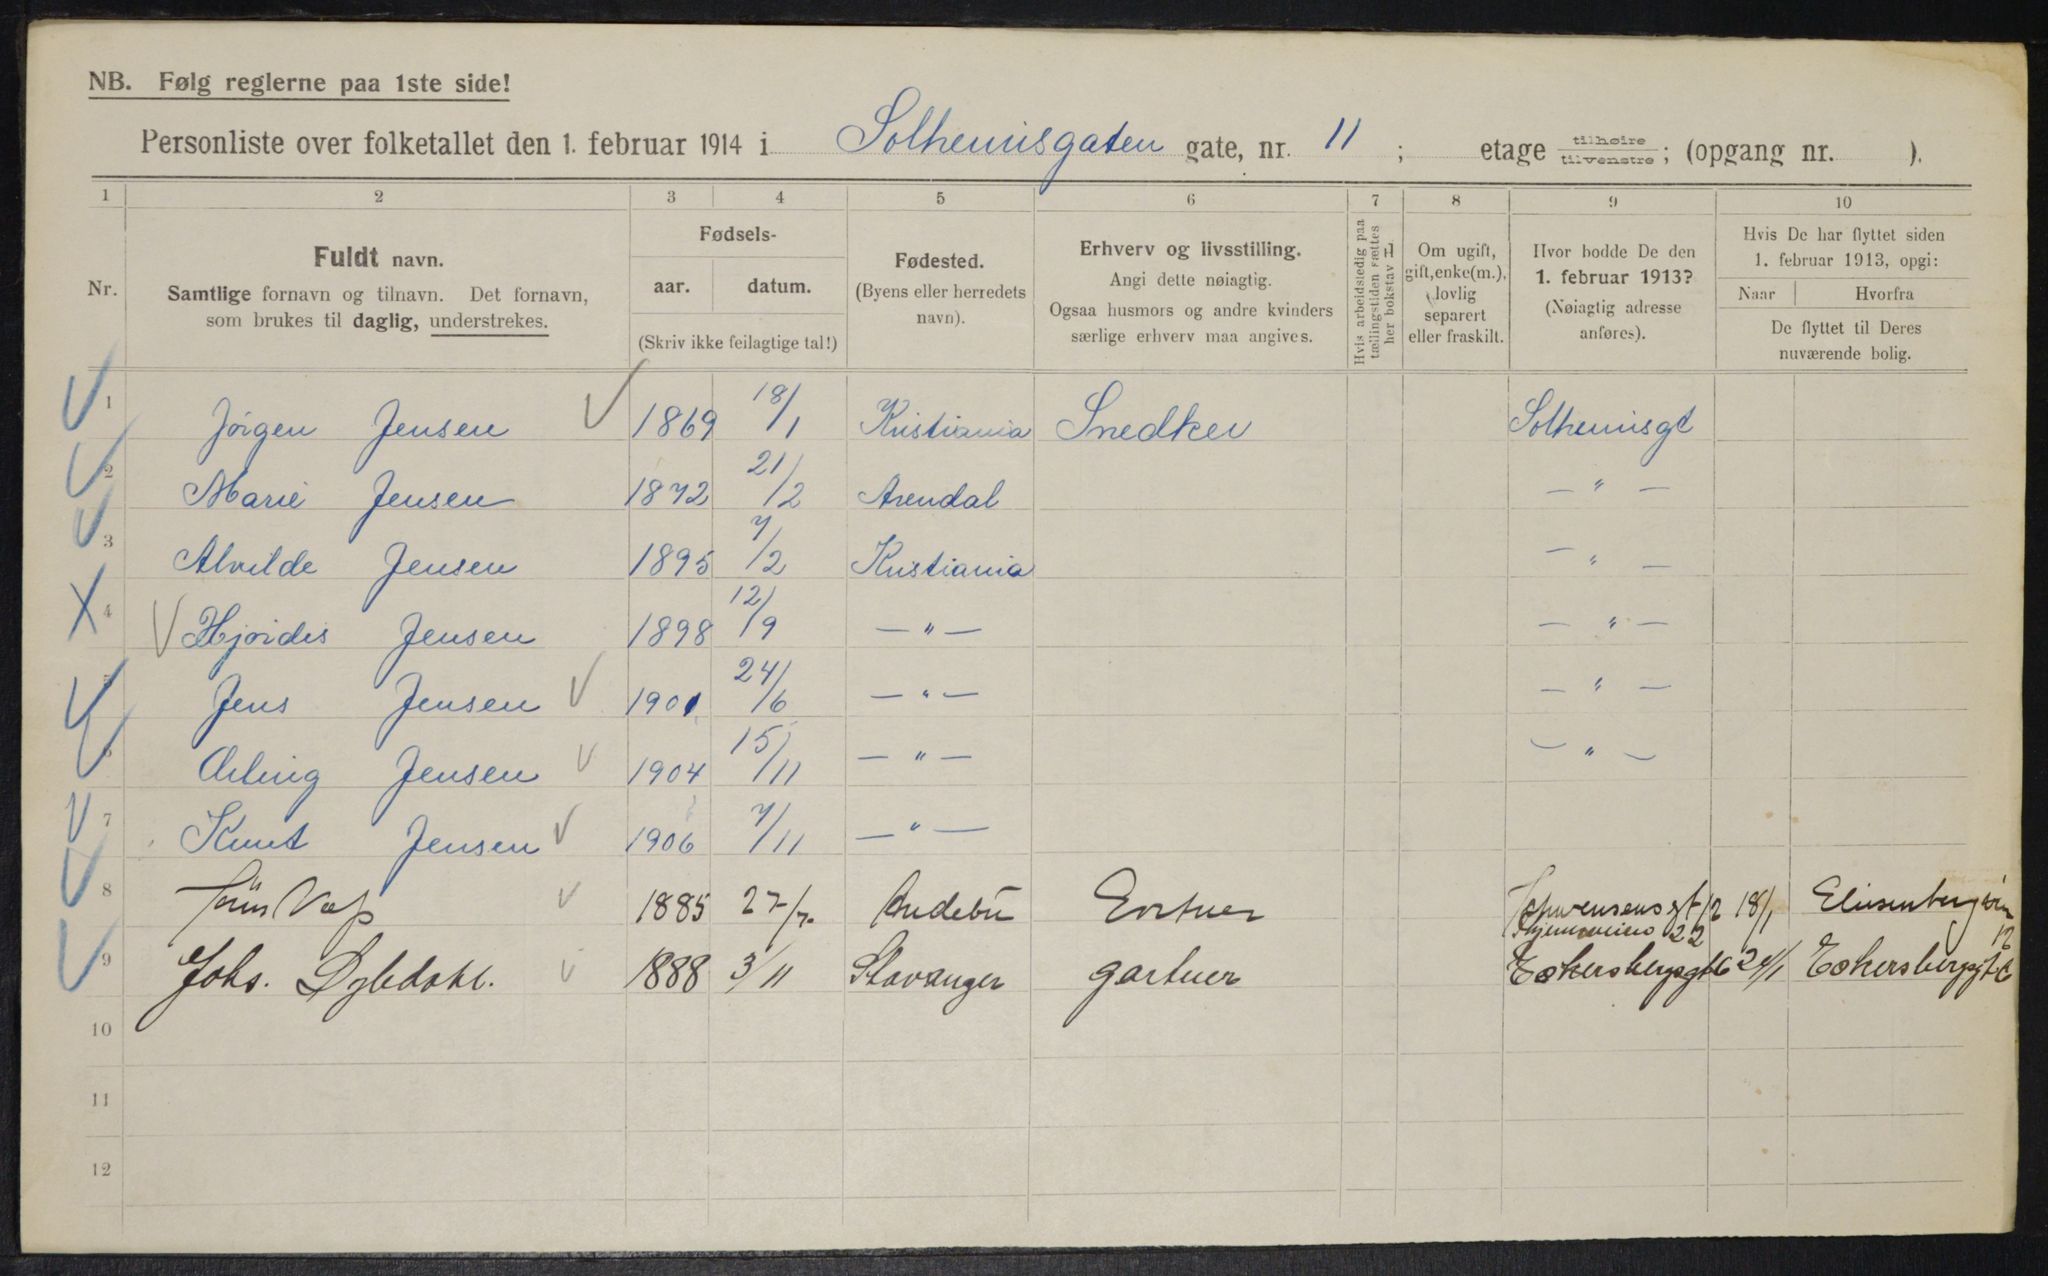 NB. Følg reglerne paa 1ste side!
Personliste over folketallet den 1. februar 1914 i Solheimsgaten gate, nr. 11 ; etage tilhøire tilvenstre ; (opgang nr. ).
1 2 3 4 5 6 7 8 9 10
Nr.
Fuldt navn.
Samtlige fornavn og tilnavn. Det fornavn,
som brukes til daglig, understrekes.
Fødsels-
aar. datum.
(Skriv ikke feilagtige tal!)
Fødested.
(Byens eller herredets
navn).
Erhverv og livsstilling.
Angi dette nøiagtig.
Ogsaa husmors og andre kvinders
særlige erhverv maa angives.
Hvis arbeidsledig paa
tællingstiden sættes
her bokstav L
Om ugift,
gift, enke(m.),
lovlig
separert
eller fraskilt.
Hvor bodde De den
1. februar 1913?
(Nøiagtig adresse
anføres).
Hvis De har flyttet siden
1. februar 1913, opgi:
Naar Hvorfra
De flyttet til Deres
nuværende bolig.
1 Jørgen Jensen 1869 18/1 Kristiania Snedker Solheimsgt
2 Marie Jensen 1872 21/2 Arendal — " —
3 Alvilde Jensen 1895 7/2 Kristiania — " —
4 Hjørdis Jensen 1898 12/9 — " — — " —
5 Jens Jensen 1901 24/6 — " — — " —
6 Erling Jensen 1904 15/11 — " — — " —
7 Knut Jensen 1906 7/11 — " —
8 1885 27/7 Andebu 18/1
22 12
9 Johs. Dybdahl. 1888 3/11 Stavanger gartner Eckersbergsgt 6 Eckersbergsgt 6
10
11
12